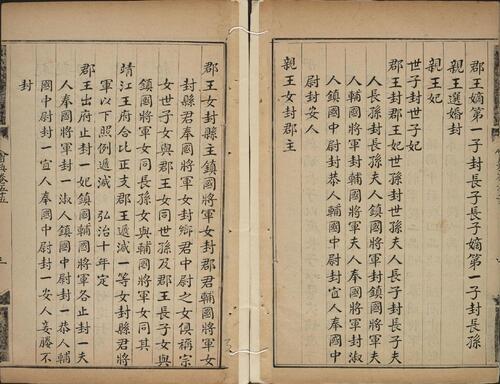 郡王嫡第一子封長子長子嫡第一子封長孫
親王選婚封
親王妃
世子封世子妃
郡王封郡王妃世孫封世孫夫人長子封長子夫
人長孫封長孫夫人鎮國將軍封鎮國將軍夫
人輔國將軍封輔國將軍夫人奉國將軍封淑
人鎮國中尉封恭人輔國中尉封宜人奉國中
尉封安人
親王女封郡主
郡王女封縣主鎮國將軍女封郡君輔國將軍女
封縣君奉國將軍女封鄉君中尉之女俱稱宗
女世子女與郡王女同世孫及郡王長子女與
鎮國將軍女同長孫女與輔國將軍女同其
靖江王府合比正支郡王遞減一等女封縣君將
軍以下照例遞減 弘治十年定
郡王出府止封一妃鎮國輔國將軍各止封一夫
人奉國將軍封一淑人鎮國中尉封一恭人輔
國中尉封一宜人奉國中尉封一安人妾媵不
封